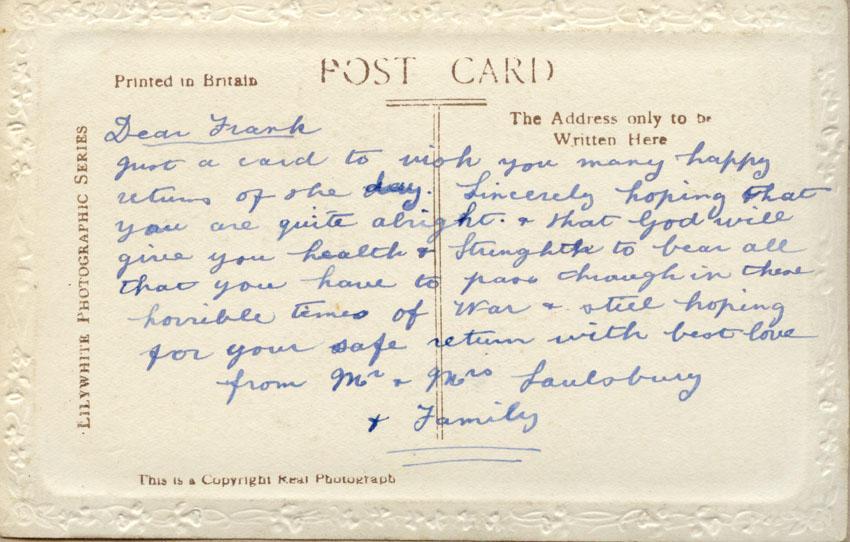 POST CARD
Printed in Britain
The Address only to be
Written Here
LILYWHITE PHOTOGRAPHIC SERIES
Dear Frank
just a card to wish you many happy
returns of the day. Sincerely hoping that
you are quite alright. & that God will
give you health & Strenghth to bear all
that you have to pass through in these
horrible times of War & still hoping
for your safe return with best love
from Mr & Mrs Saulsbury
& Family
This is a Copyright Real Photograph